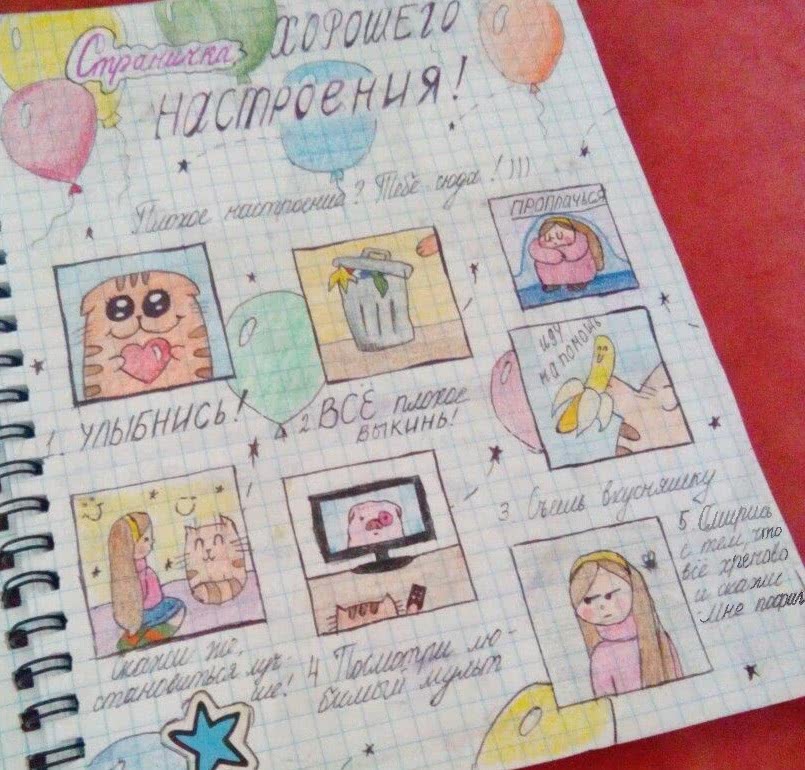 Страничка ХОРОШЕГО
НАСТРОЕНИЯ!
Плохое настроение? Тебе сюда!)))
ПРОПЛАЧЬСЯ
ИДУ
НА ПОМОЩЬ
1. УЛЫБНИСЬ!
2. ВСЁ плохое
ВЫКИНЬ!
3 Съешь вкусняшку
Скажи же,
становиться луч-
ше!
4 Посмотри лю-
бимый мульт
5 Смирись
с тем, что
всё хреново
и скажи
мне пофиг